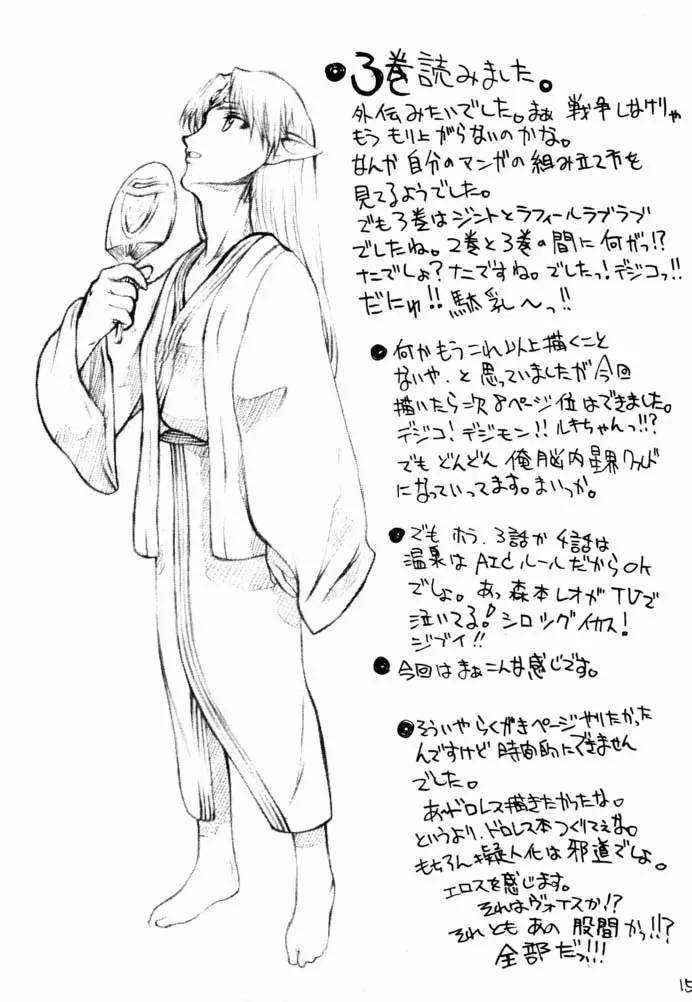 ●3巻読みました。
外伝みたいでした。まぁ 戦争しなけりゃ
もう もり上がらないのかな。
なんか 自分のマンガの組み立て方を
見てるようでした。
でも3巻はジントとラフィールラブラブ
でしたね。2巻と3巻の間に何がっ!?
なでしょ?なですね。でしたっ!デジコっ!!
だにゅ!!駄乳〜っ!!
●何かもうこれ以上描くこと
ないや.と思っていましたが今回
描いたら 8ページ位はできました。
デジコ!デジモン!!ルキちゃんっ!!?
でも どんどん 俺脳内星界ワールド
になっていってます。まいっか。
●でも ホラ.3話か4話は
温泉は AICルールだからOK
でしょ。あっ 森本レオが TVで
泣いてる!シロツグイカス!
ジブイ!!
●今回はまぁこんな感じです。
●そういや らくがきページやりたかった
んですけど 時間的にできません
でした。
あ、ドロレス描きたかったな。
というより.ドロレス本つくりてぇな。
もちろん擬人化は邪道でしょ。
エロスを感じます。
それはヴォイスか!?
それとも あの 股間かっ!!?
全部だっ!!!
15